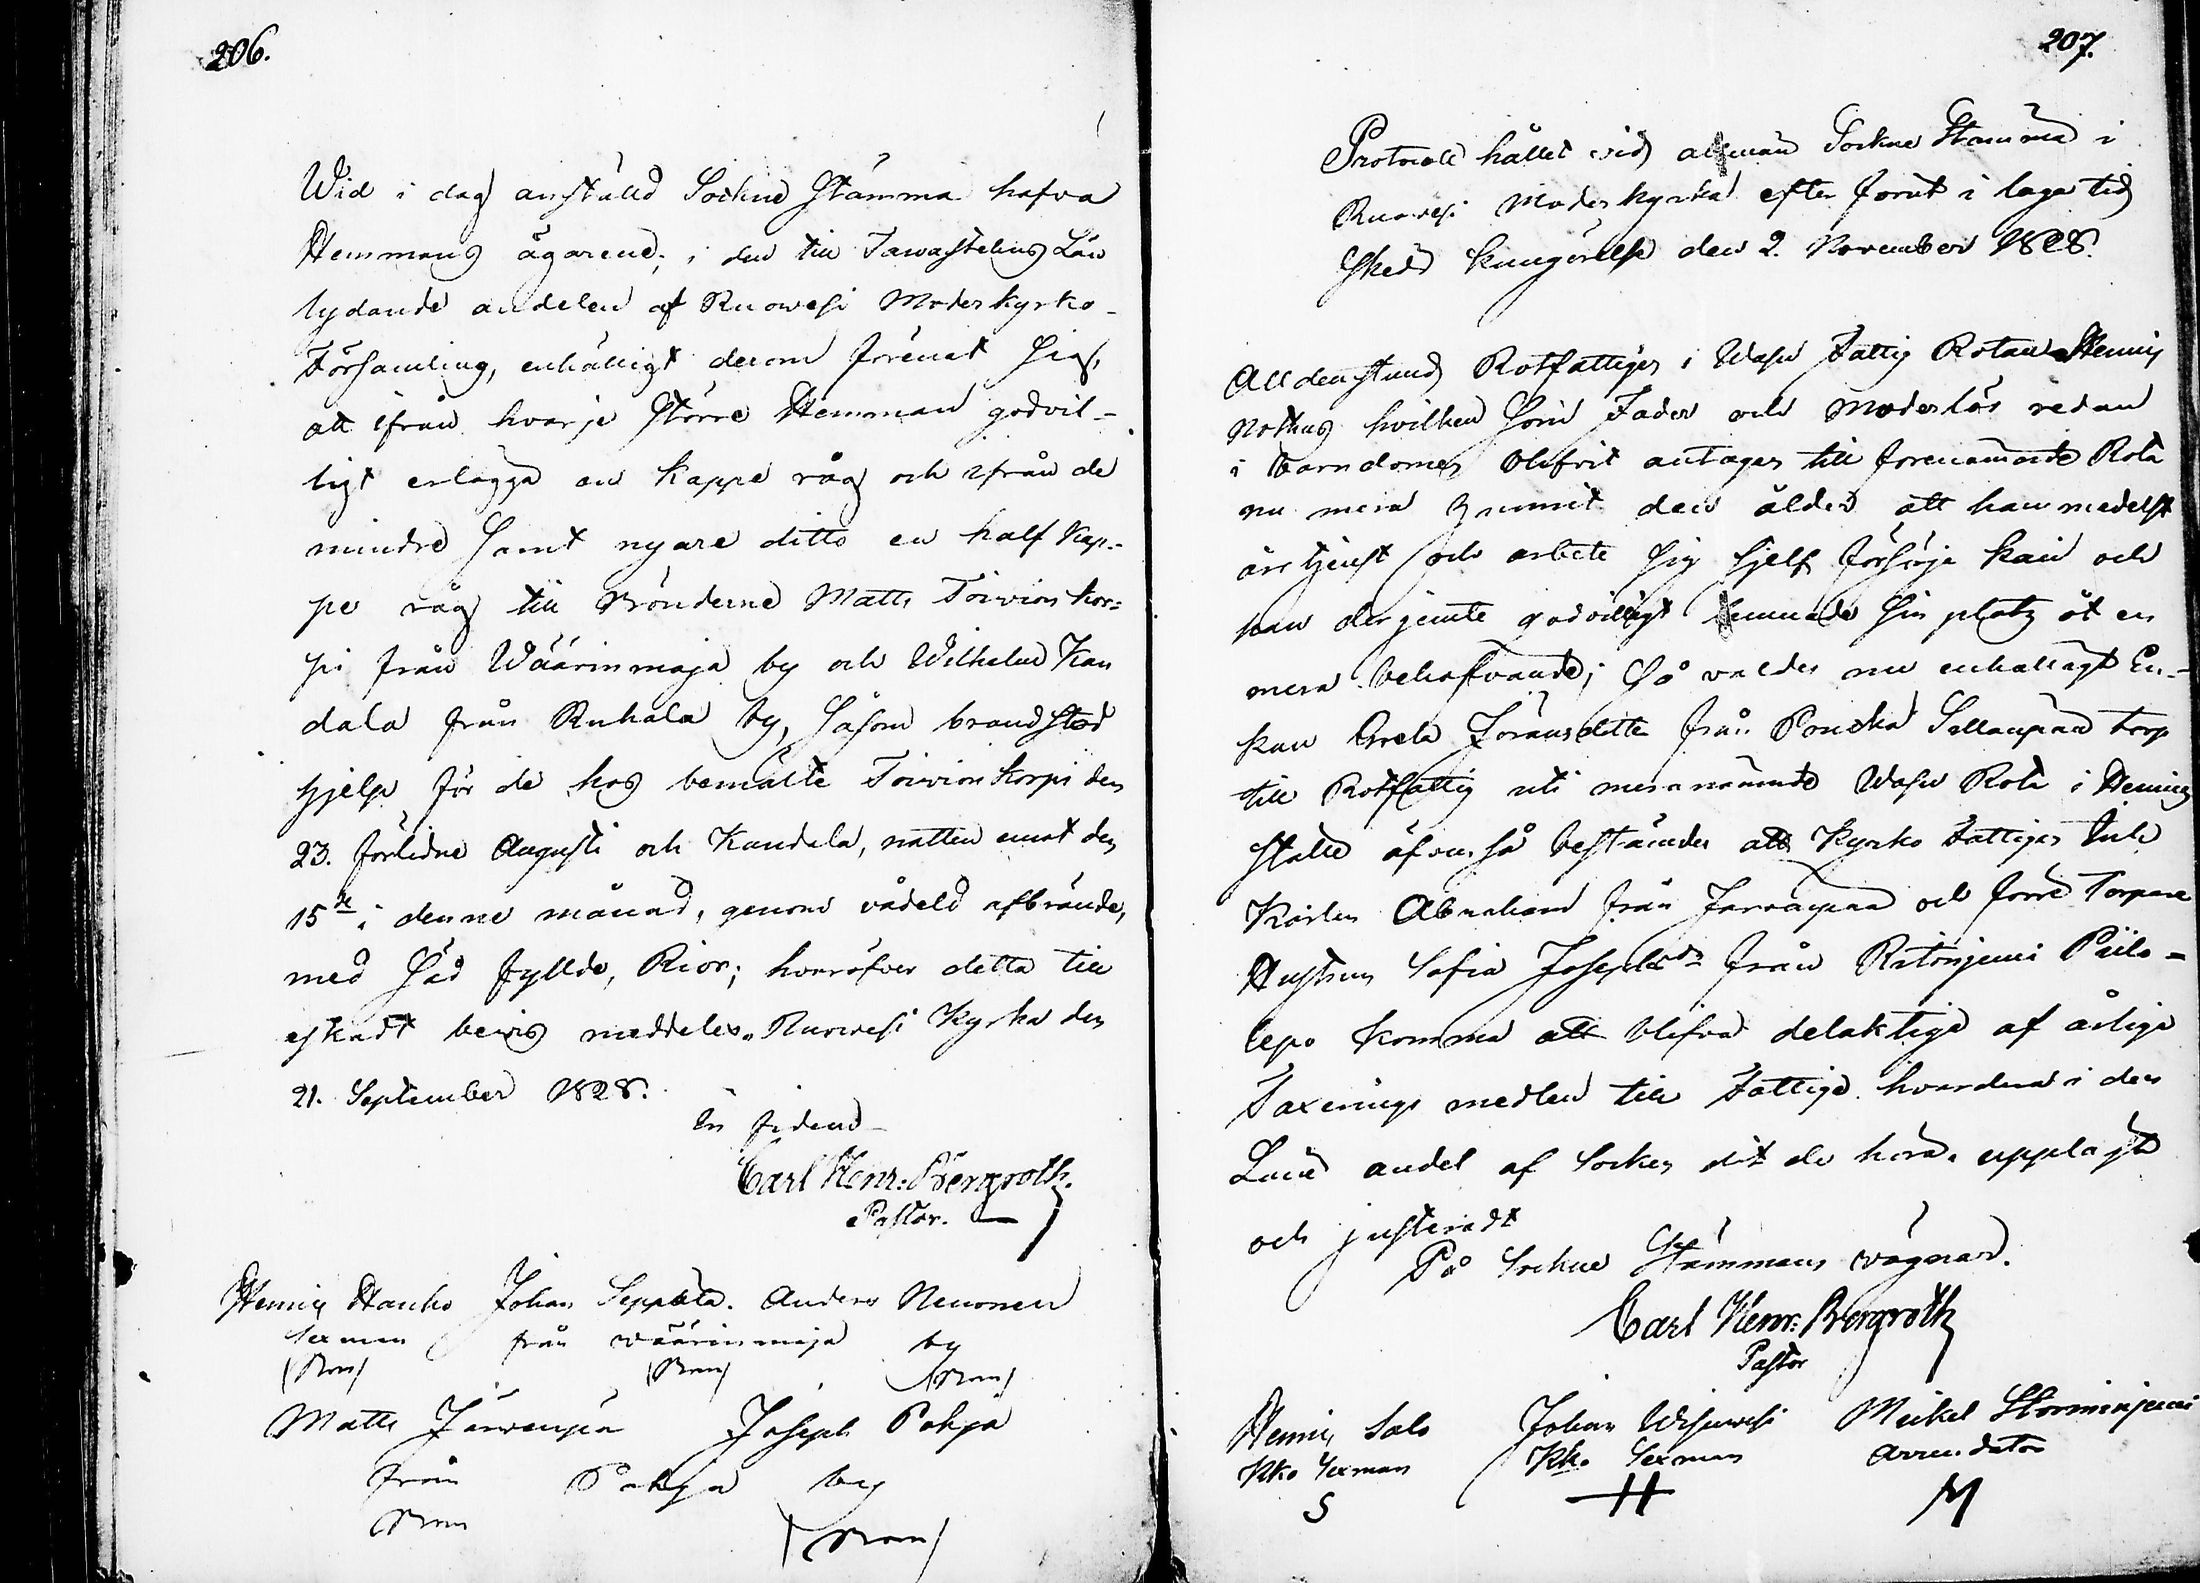 206.
Wid i dag anstäld Sockne Stämma hafva
Hemmans ägarene, i den till Tawastehus Län
lydande andelen af Ruowesi Moderkyrko-
Församling, enhälligt derom förenat sig,
att ifrån hvarje större Hemman godvil-
ligt erlägga en Kappe råg och ifrån de
mindre samt nyare ditto en half Kap-
pe råg till Bönderne Matts Toivion kor-
pi från Wäärinmaja by och Wilhelm Kan
dala från Ruhala by, såsom brandstod
hjelp för de hos bemälte Toivionkorpi den
23. förlidne Augusti och Kandala, natten emot den
15de i denne månad, genom vådeld afbrände,
med Säd fyllde, Rior; hvaröfver detta till
äskadt bevis meddeles. Ruowesi Kyrka den
21. September 1828.
In fidem
Carl Henr: Bergroth.
Pastor.
Henric Hanko Johan Seppälä. Anders Neuonen
Sexman från Wäärinmaja by
(Bom) (Bom) (Bom)
Matts Järvenpä Joseph Pohja
från Pohja by
Bom (Bom)
207.
Protocoll hållet vid allmän Sockne Stämma i
Ruowesi Moder kyrka efter förut i laga tid
skedd kungörelse den 2. November 1828.
Alldenstund Rotfattiges i Wasu Fattig Rotan Henric
Nothus hvilken som Fader och Moderlös redan
i barndomen blifvit antagen till förenämnde Rota
nu mera hunnit den ålder att han medelst
års tjenst och arbete sig sjelf försörja kan och
han derjemte godvilligt lemnade sin plats åt en
mera behöfvande; Så valdes nu enhälligt En-
kan Greta Jöransdotter från Ponska Sillanpää torp
till Rotfattig uti meranämnde Wasu Rota i Henrics
ställe äfven så bestämdes att Kyrko Fattiges Inh
Karlen Abraham från Jarvänpää och förre Torpare
Hustrun Sofia Josephsdr från Ritoniemi Piilo-
lepo komma att blifva delaktige af årlige
Taxerings medlen till Fattige hvardera i den
Läns andel af Socken dit de höra. uppläst
och justeradt
På Sockne Stämmans vägnar.
Carl Henr: Bergroth
Pastor
Henric Salo Johan Wisuvesi Mickel Storminjemi
Kko Sexman Kko Sexman Arrendator
S H M